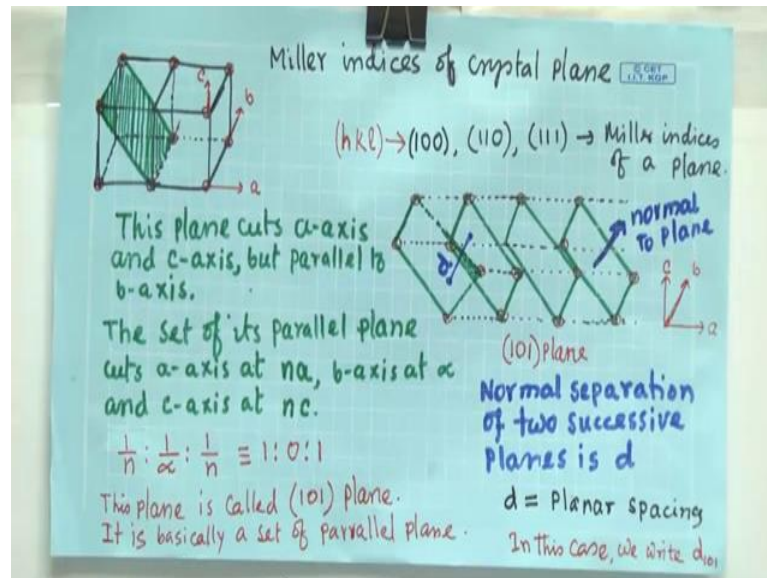 Miller indices of crystal plane
© CET
I.I.T. KGP
c
b
a
(hkl) → (100), (110), (111) → Miller indices
of a plane.
This plane cuts a-axis
and c-axis, but parallel to
b-axis.
d
normal
to plane
c
b
a
(101) plane
The set of its parallel plane
cuts a-axis at na, b-axis at ∝
and c-axis at nc.
1/n : 1/∝ : 1/n ≡ 1:0:1
This plane is called (101) plane.
It is basically a set of parrallel plane.
Normal separation
of two successive
planes is d
d = Planar spacing
In this case, we write d₁₀₁